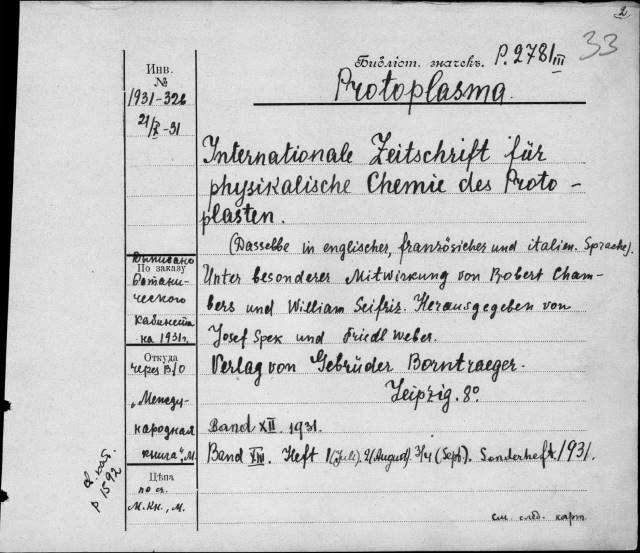 2
33
Библіот. значекъ. P. 2781 III
Protoplasma.
Инв.
№
1931-326
21/X-31
Internationale Zeitschrift für
physikalische Chemie des Proto-
plasten.
(Dasselbe in englischer, französicher und italien. Sprache).
Выписано
По заказу
Ботани-
ческого
кабинета
на 1931г.
Unter besonderer Mitwirkung von Robert Cham-
bers und William Seifriz. Herausgegeben von
Josef Spek und Friedl Weber.
Verlag von Gebrüder Borntraeger.
Leipzig. 8°
Откуда
через В/О
„Между-
народная
книга", М.
Band XII. 1931.
Band XIV. Heft 1 (Juli). 2 (August) 3/4 (Sept.). Sonderheft. 1931.
Цѣна
по сч.
М.Кн., М.
P 1592
см. след. карт.